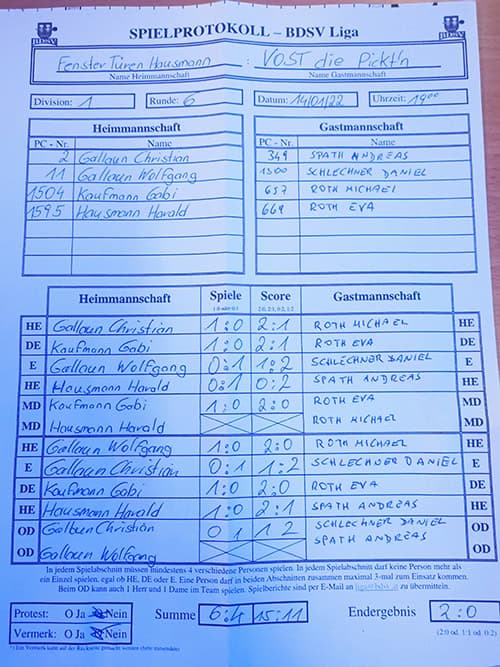 SPIELPROTOKOLL – BDSV Liga
BDSV BDSV
Fenster Türen Hausmann : VOST die Pickt'n
Name Heimmannschaft Name Gastmannschaft
Division: 1 Runde: 6 Datum: 14/01/22 Uhrzeit: 19⁰⁰
Heimmannschaft Gastmannschaft
PC - Nr. Name PC - Nr. Name
2 Gallaun Christian 349 SPATH ANDREAS
11 Gallaun Wolfgang 1300 SCHLECHNER DANIEL
1504 Kaufmann Gabi 657 ROTH MICHAEL
1595 Hausmann Harald 669 ROTH EVA
Heimmannschaft Spiele Score Gastmannschaft
1:0 oder 0:1 2:0, 2:1, 0:2, 1:2
HE Gallaun Christian 1:0 2:1 ROTH MICHAEL HE
DE Kaufmann Gabi 1:0 2:1 ROTH EVA DE
E Gallaun Wolfgang 0:1 1:2 SCHLECHNER DANIEL E
HE Hausmann Harald 0:1 0:2 SPATH ANDREAS HE
MD Kaufmann Gabi 1:0 2:0 ROTH EVA MD
MD Hausmann Harald ROTH MICHAEL MD
HE Gallaun Wolfgang 1:0 2:0 ROTH MICHAEL HE
E Gallaun Christian 0:1 1:2 SCHLECHNER DANIEL E
DE Kaufmann Gabi 1:0 2:0 ROTH EVA DE
HE Hausmann Harald 1:0 2:1 SPATH ANDREAS HE
OD Gallaun Christian 0 1 1 2 SCHLECHNER DANIEL OD
OD Gallaun Wolfgang SPATH ANDREAS OD
In jedem Spielabschnitt müssen mindestens 4 verschiedene Personen spielen. In jedem Spielabschnitt darf keine Person mehr als
ein Einzel spielen, egal ob HE, DE oder E. Eine Person darf in beiden Abschnitten zusammen maximal 3-mal zum Einsatz kommen.
Beim OD kann auch 1 Herr und 1 Dame im Team spielen. Spielberichte sind per E-Mail an liga@bdsv.at zu übermitteln.
Protest: O Ja O Nein Summe 6:4 15:11 Endergebnis 2:0
Vermerk: O Ja O Nein (2:0 od. 1:1 od. 0:2)
*) Ein Vermerk kann auf der Rückseite gemacht werden (bitte anmerken)